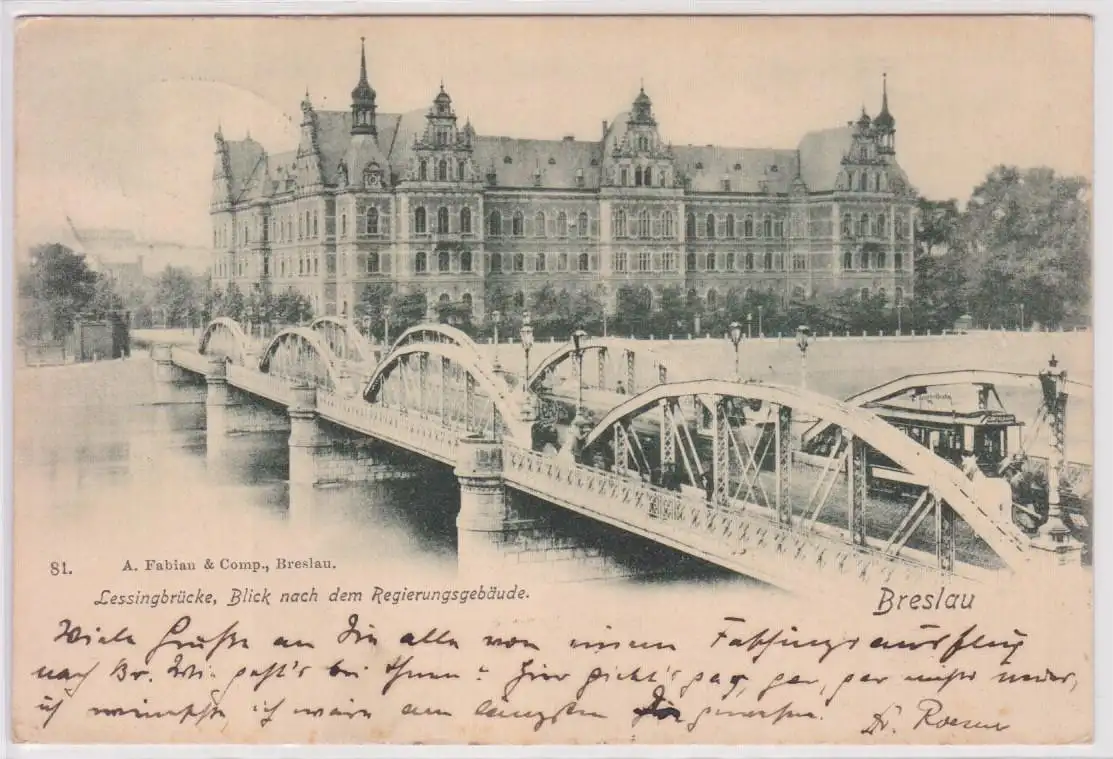 81.
A. Fabian & Comp., Breslau.
Lessingbrücke, Blick nach dem Regierungsgebäude.
Breslau
Viele Grüße an Sie alle von einem Faschingsausflug
nach Br. Wie geht's bei Ihnen? Hier gar, gar, gar nicht
ich wünschte ich wäre am längsten gewesen.
Dr.